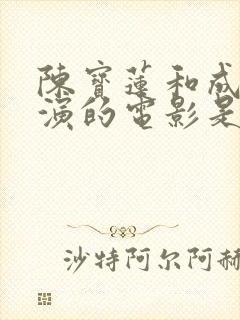 陳寶蓮和成
演的電影是
沙特阿尔阿赫